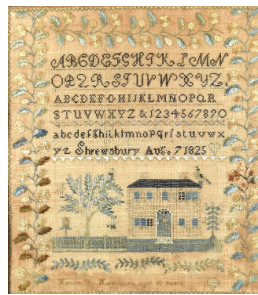 ABCDEFGHIKLMN
OPQRSTUVWXYZ.
ABCDEFGHIJKLMNOPQR
STUVWXYZ&1234567890
abcdefghijklmnopqrſstuvwx
yz Shrewsbury Aug. 7 1825